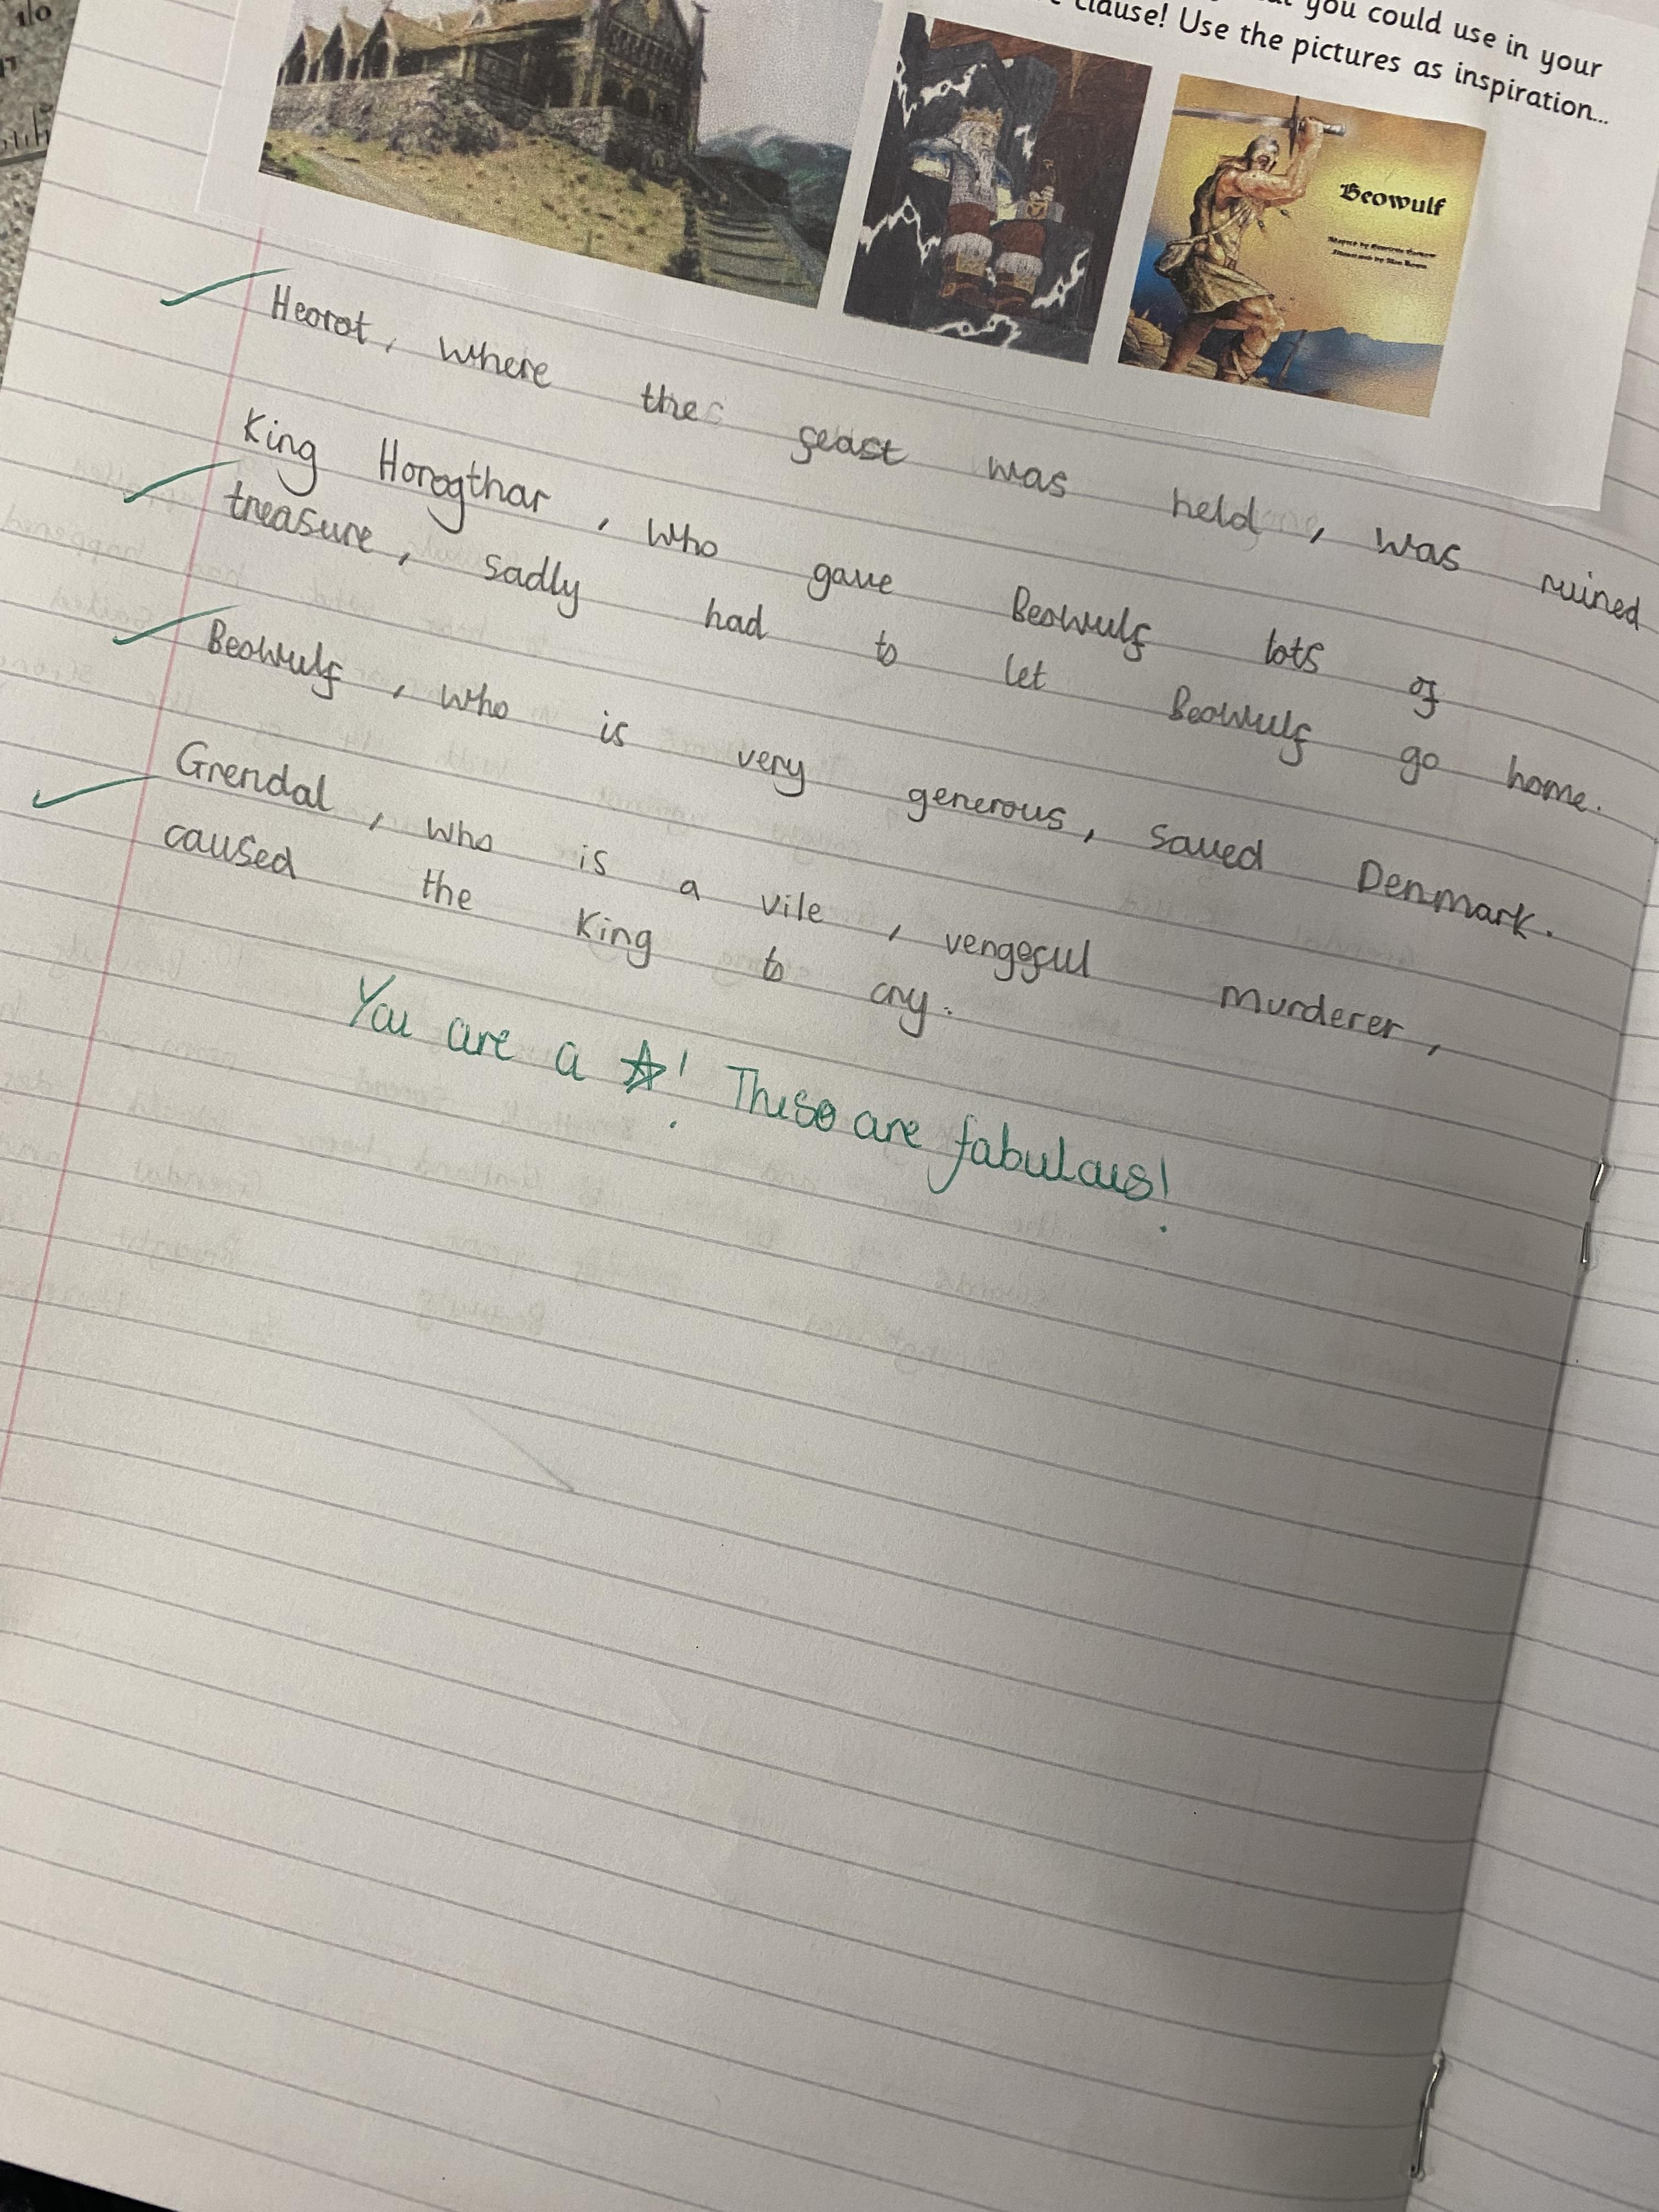 you could use in your
clause! Use the pictures as inspiration...
Beowulf
Heorot, where the feast was held, was ruined
King Horogthar, who gave Beowulf lots of
treasure, sadly had to let Beowulf go home.
Beowulf, who is very generous, saved Denmark.
Grendal, who is a vile, vengeful murderer,
caused the King to cry.
You are a ☆! These are fabulous!